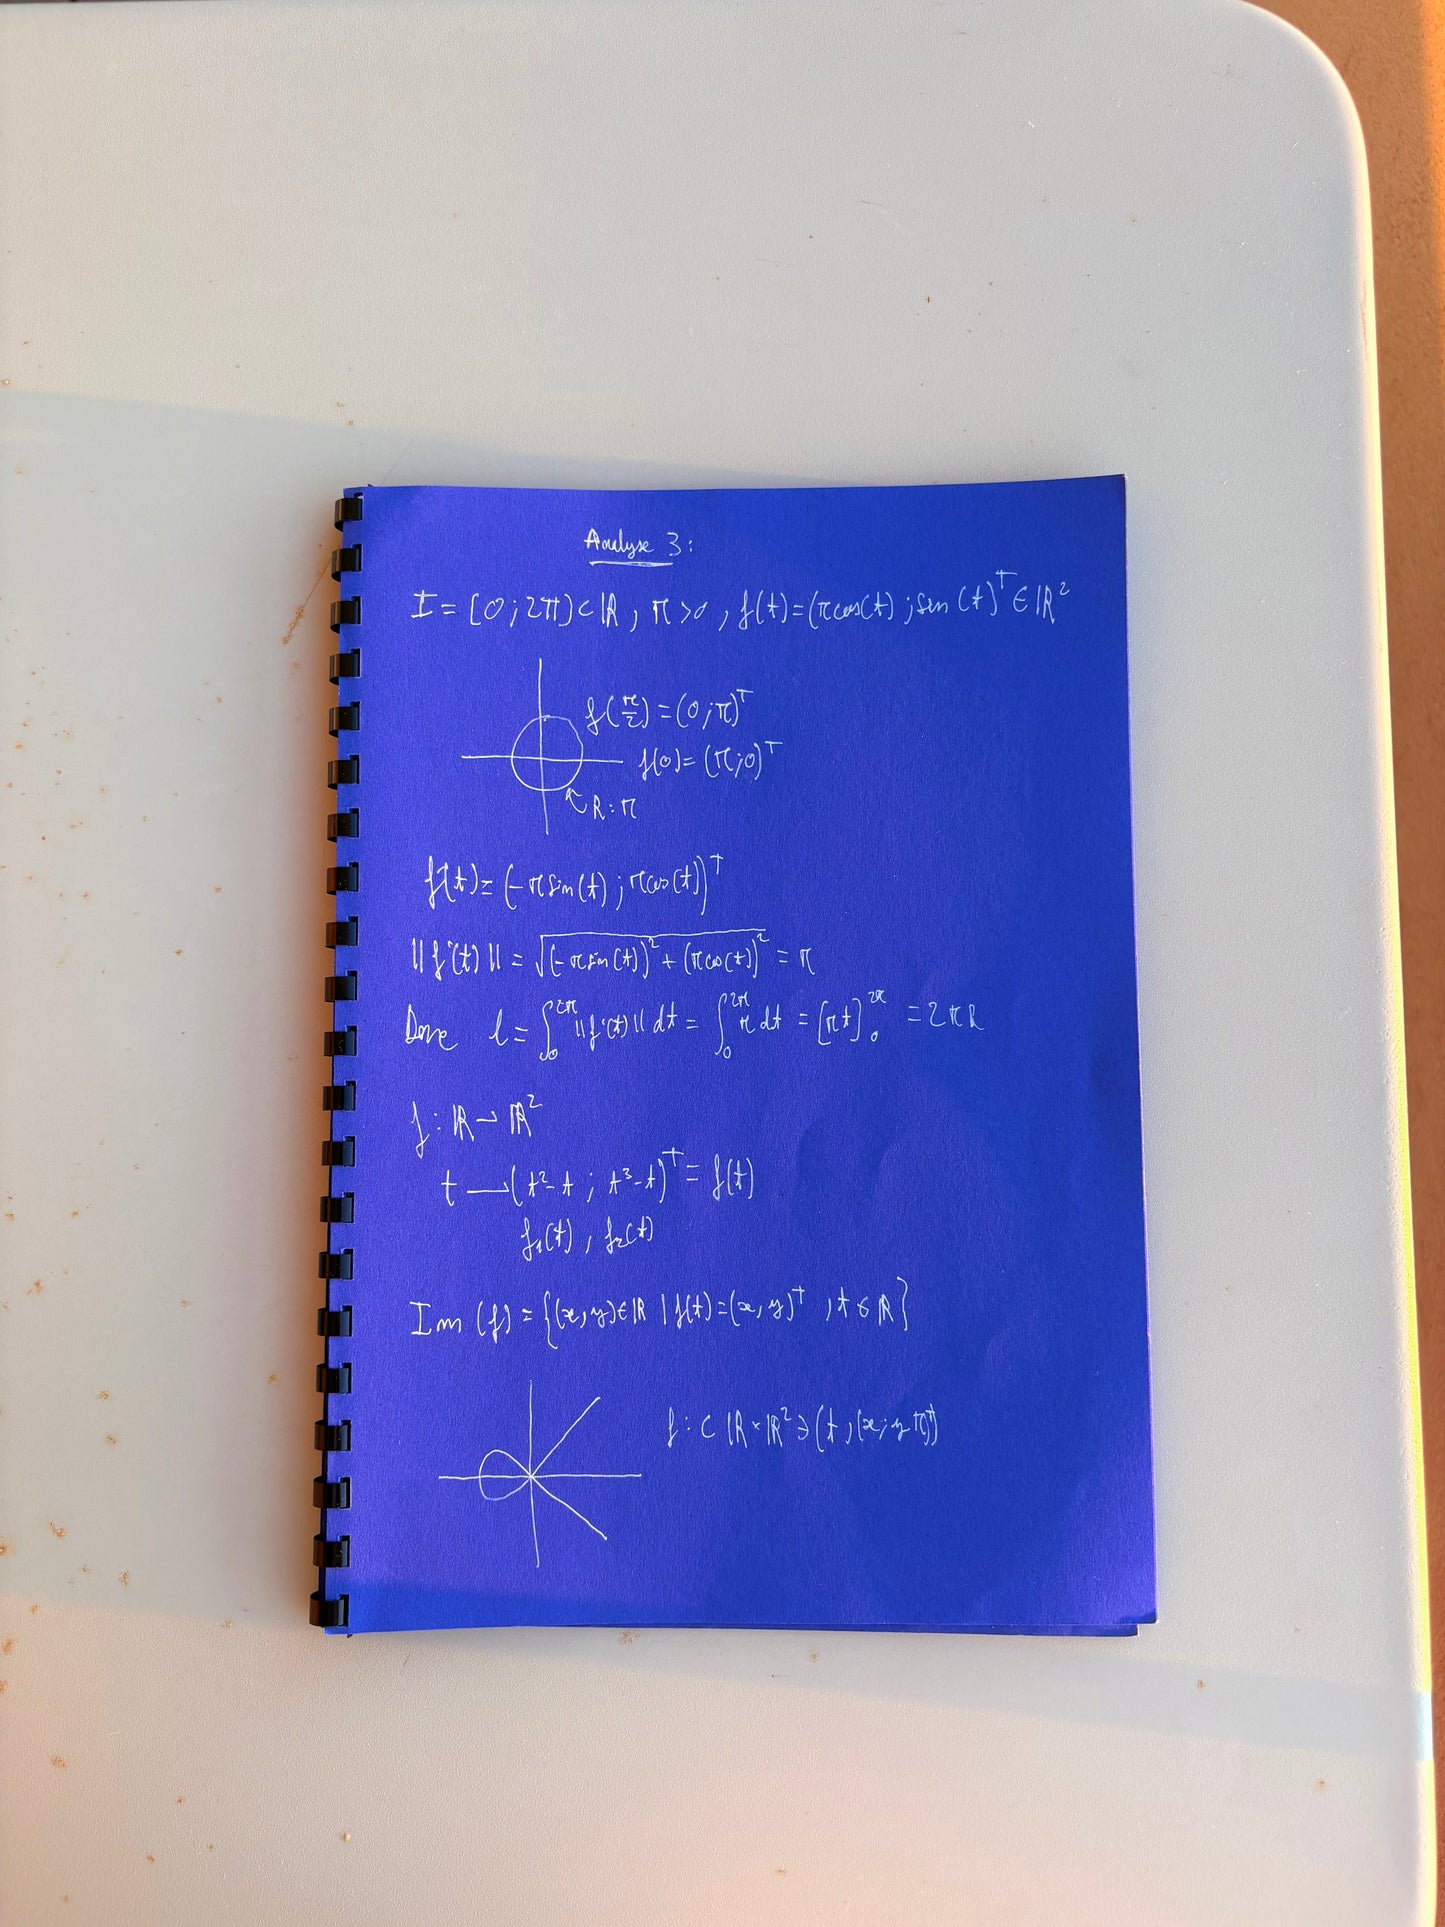 Analyse 3:
I = [0; 2π) ⊂ ℝ, π > 0, f(t) = (π cos(t); sin(t))ᵀ ∈ ℝ²
f(π/2) = (0; π)ᵀ
f(0) = (π; 0)ᵀ
R: π
f'(t) = (-π sin(t); π cos(t))ᵀ
||f'(t)|| = √((-π sin(t))² + (π cos(t))²) = π
Donc l = ∫₀^2π ||f'(t)|| dt = ∫₀^2π π dt = [πt]₀^2π = 2πR
f: ℝ → ℝ²
t → (t² - t; t³ - t)ᵀ = f(t)
f₁(t), f₂(t)
Im (f) = {(x, y) ∈ ℝ | f(t) = (x, y)ᵀ, t ∈ ℝ}
f: ⊂ ℝ × ℝ² ∋ (t, (x; y